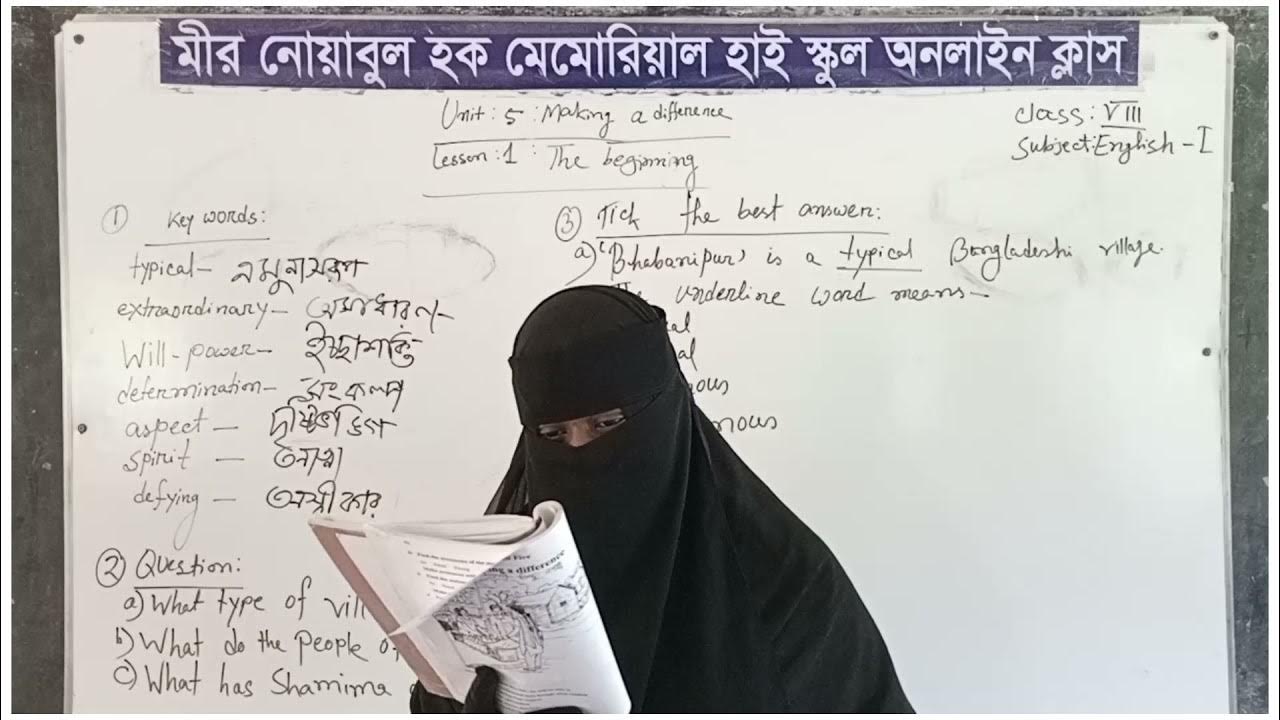 মীর নোয়াবুল হক মেমোরিয়াল হাই স্কুল অনলাইন ক্লাস
Unit : 5 : Making a difference
Lesson : 1 : The beginning
Class : VIII
Subject: English - I
① Key words:
typical - নমুনাস্বরূপ
extraordinary - অসাধারণ -
Will-power - ইচ্ছাশক্তি
determination - সংকল্প
aspect - দৃষ্টিভঙ্গি
spirit -
defying - অস্বীকার
② Question:
a) What type of
b) What do the people
c) What has Shamima
③ Tick the best answer:
a) 'Bhabanipur' is a typical Bangladeshi village.
underline word means -
a difference